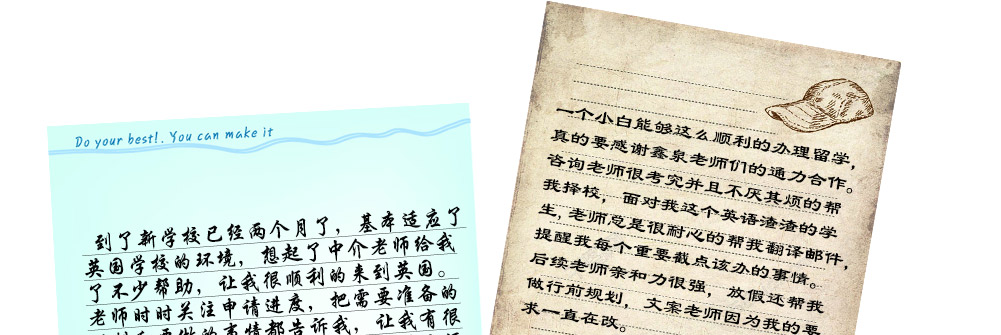 Do your best!. You can make it
到了新学校已经两个月了，基本适应了
英国学校的环境，想起了中介老师给我
了不少帮助，让我很顺利的来到英国。
老师时时关注申请进度，把需要准备的
的事情都告诉我，让我有很
一个小白能够这么顺利的办理留学，
真的要感谢鑫泉老师们的通力合作。
咨询老师很考究并且不厌其烦的帮
我择校，面对我这个英语渣渣的学
生，老师总是很耐心的帮我翻译邮件，
提醒我每个重要截点该办的事情。
后续老师亲和力很强，放假还帮我
做行前规划，文案老师因为我的要
求一直在改。